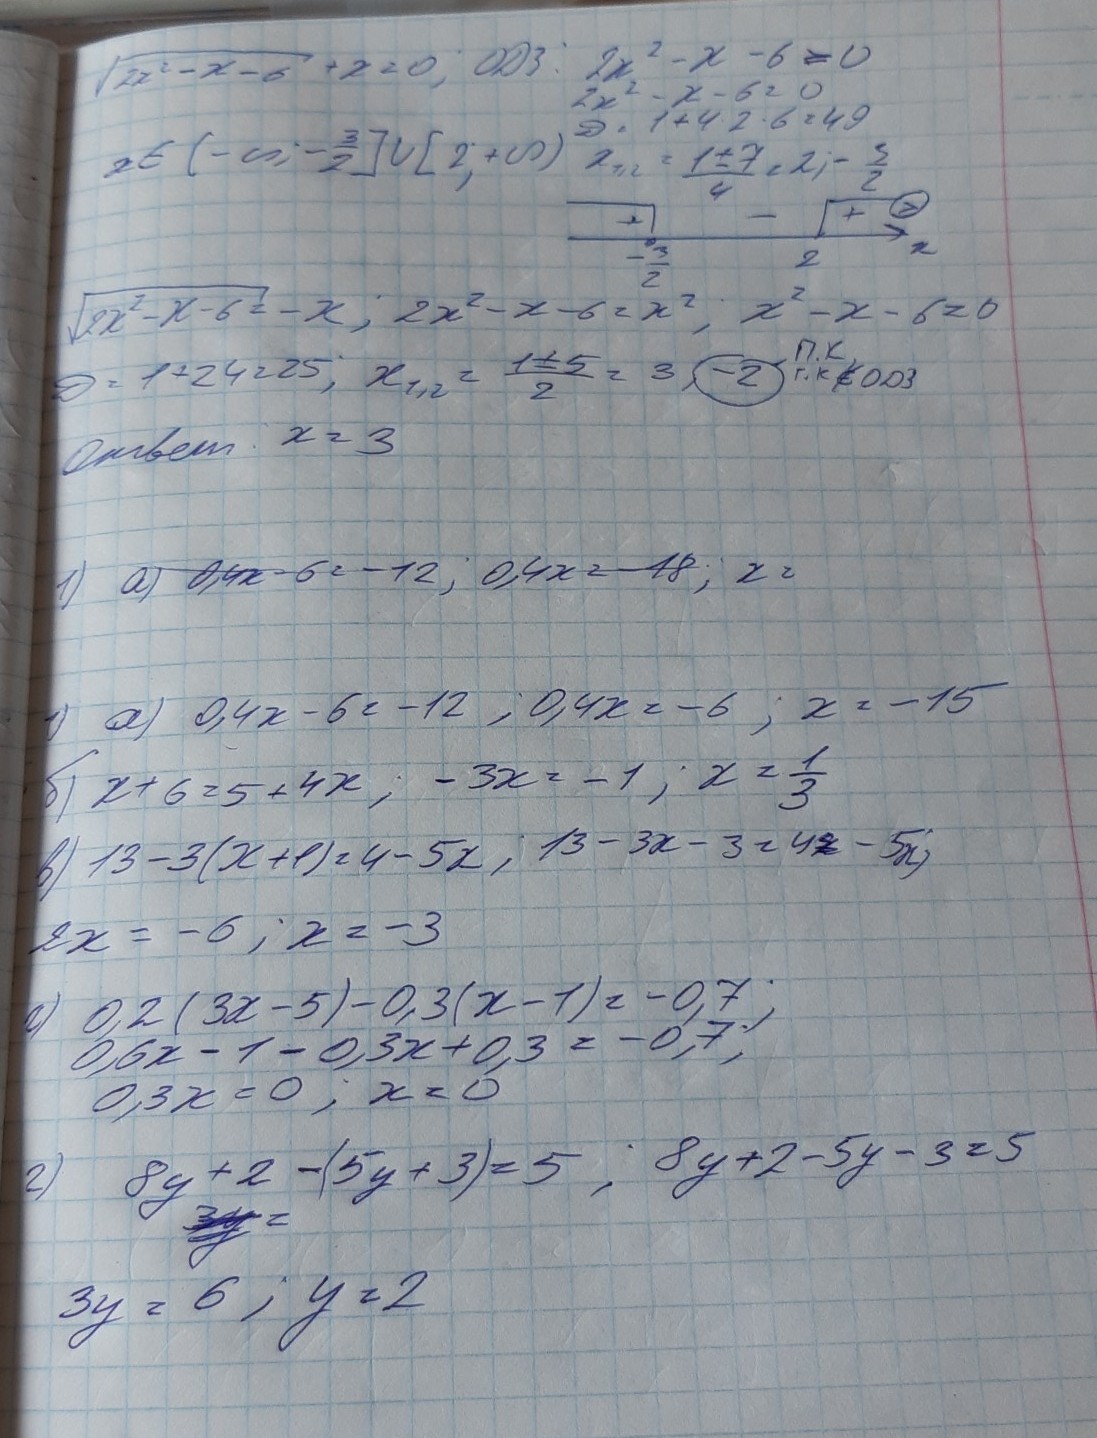 √(2x² - x - 6) + x = 0; ОДЗ: 2x² - x - 6 ≥ 0
2x² - x - 6 = 0
D = 1 + 4·2·6 = 49
x ∈ (-∞; -3/2] ∪ [2; +∞) x₁,₂ = (1 ± 7)/4 = 2; -3/2
+ - + ≥
-3/2 2 x
√(2x² - x - 6) = -x; 2x² - x - 6 = x²; x² - x - 6 = 0
D = 1 + 24 = 25; x₁,₂ = (1 ± 5)/2 = 3, -2 П.К. т.к ∉ ОДЗ
Ответ: x = 3
1) а) 0,4x - 6 = -12; 0,4x = -18; x =
1) а) 0,4x - 6 = -12; 0,4x = -6; x = -15
б) x + 6 = 5 + 4x; -3x = -1; x = 1/3
в) 13 - 3(x + 1) = 4 - 5x; 13 - 3x - 3 = 4 - 5x;
2x = -6; x = -3
г) 0,2(3x - 5) - 0,3(x - 1) = -0,7;
0,6x - 1 - 0,3x + 0,3 = -0,7;
0,3x = 0; x = 0
г) 8y + 2 - (5y + 3) = 5; 8y + 2 - 5y - 3 = 5
3y =
3y = 6; y = 2